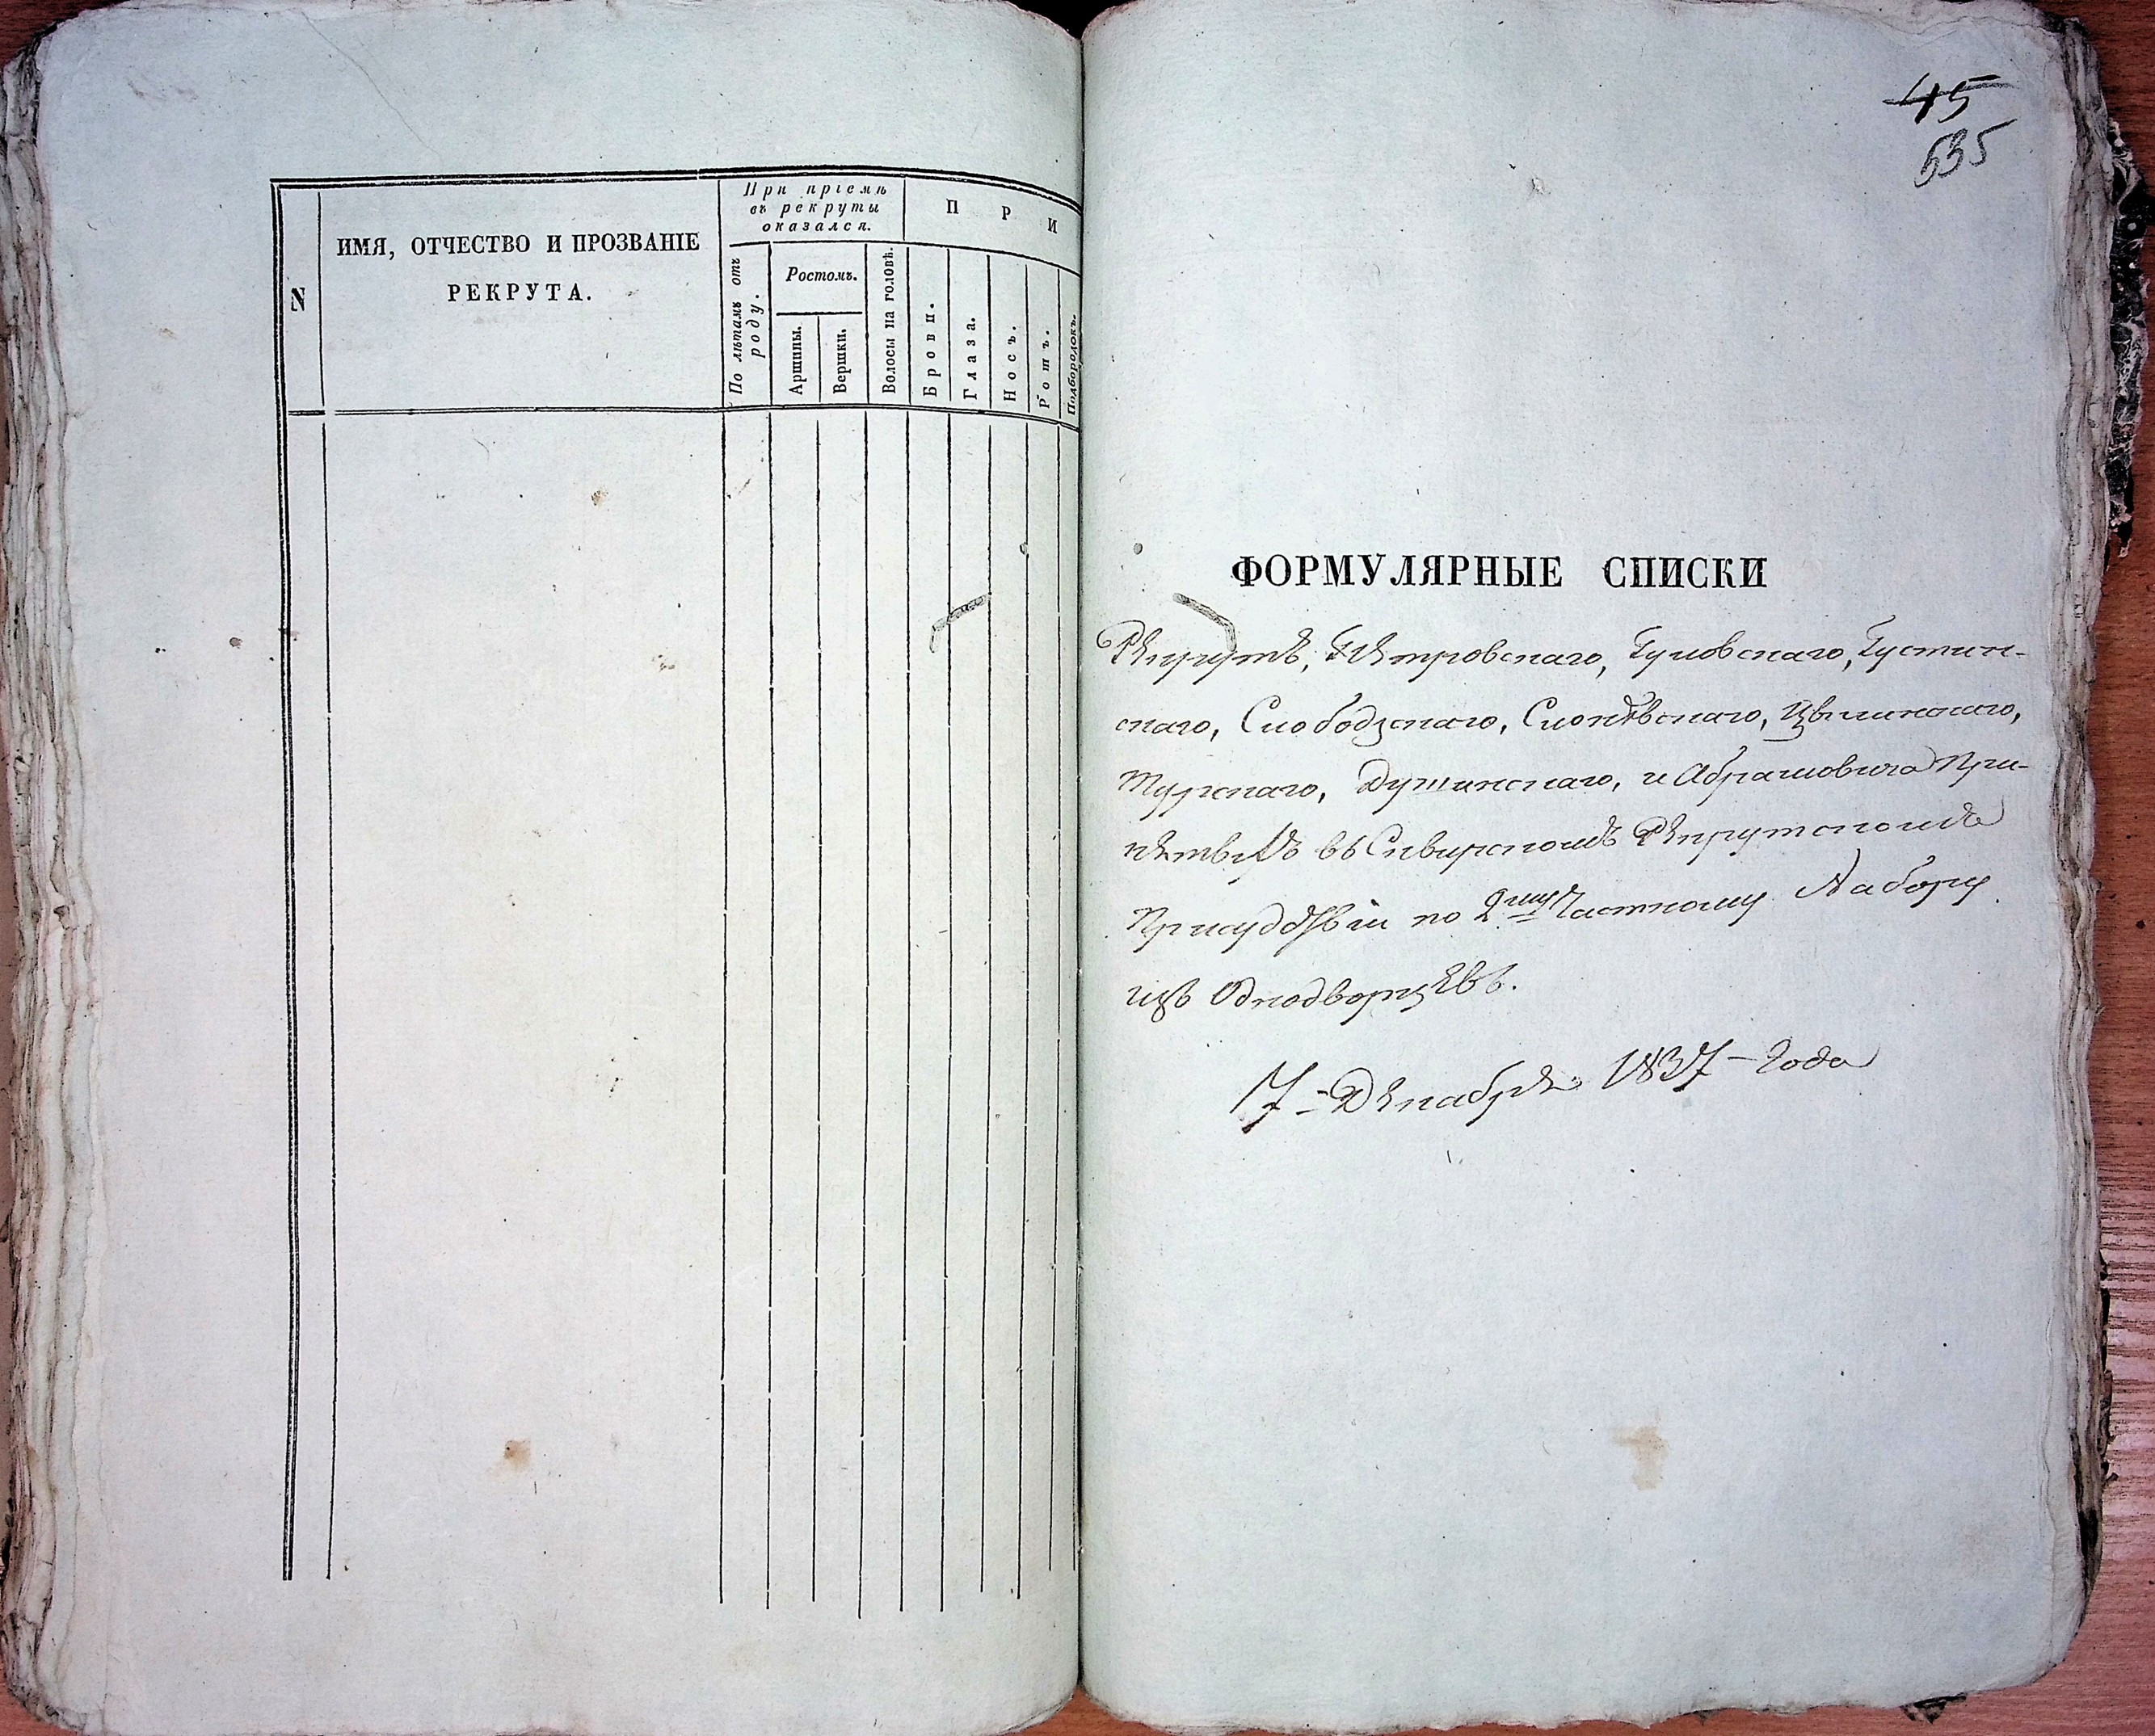 N
ИМЯ, ОТЧЕСТВО И ПРОЗВАНІЕ
РЕКРУТА.
При пріемѣ
въ рекруты
оказался.
П Р И
По лѣтамъ отъ
роду.
Ростомъ.
Аршины.
Вершки.
Волосы на головѣ.
Брови.
Глаза.
Носъ.
Ротъ.
Подбородокъ.
45
535
ФОРМУЛЯРНЫЕ СПИСКИ
Рекрутъ, Петровскаго, Гуловскаго, Густин-
скаго, Слободзскаго, Цвилинскаго,
Турскаго, и Абрамовича При-
въ Сквирскомъ Рекрутскомъ
Присудствіи по 2му Частному Набору
изъ Однодворцевъ.
7 Декабря 1837 Года